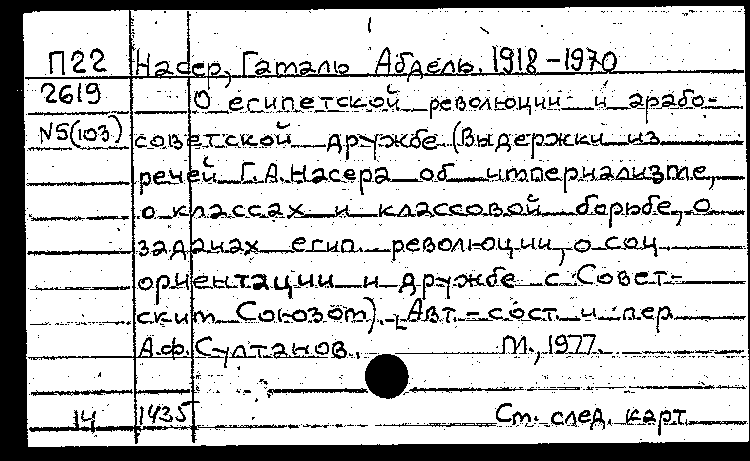 П22 Насер, Гамаль Абдель. 1918-1970
2619 О египетской революции и арабо-
N5(103) советской дружбе (Выдержки из
речей Г.А.Насера об империализме,
о классах и классовой борьбе, о
задачах егип. революции, о соц
ориентации и дружбе с Совет-
ским Союзом). Авт.-сост. и пер
А.Ф.Султанов. М., 1977.
14 1435 См. след. карт